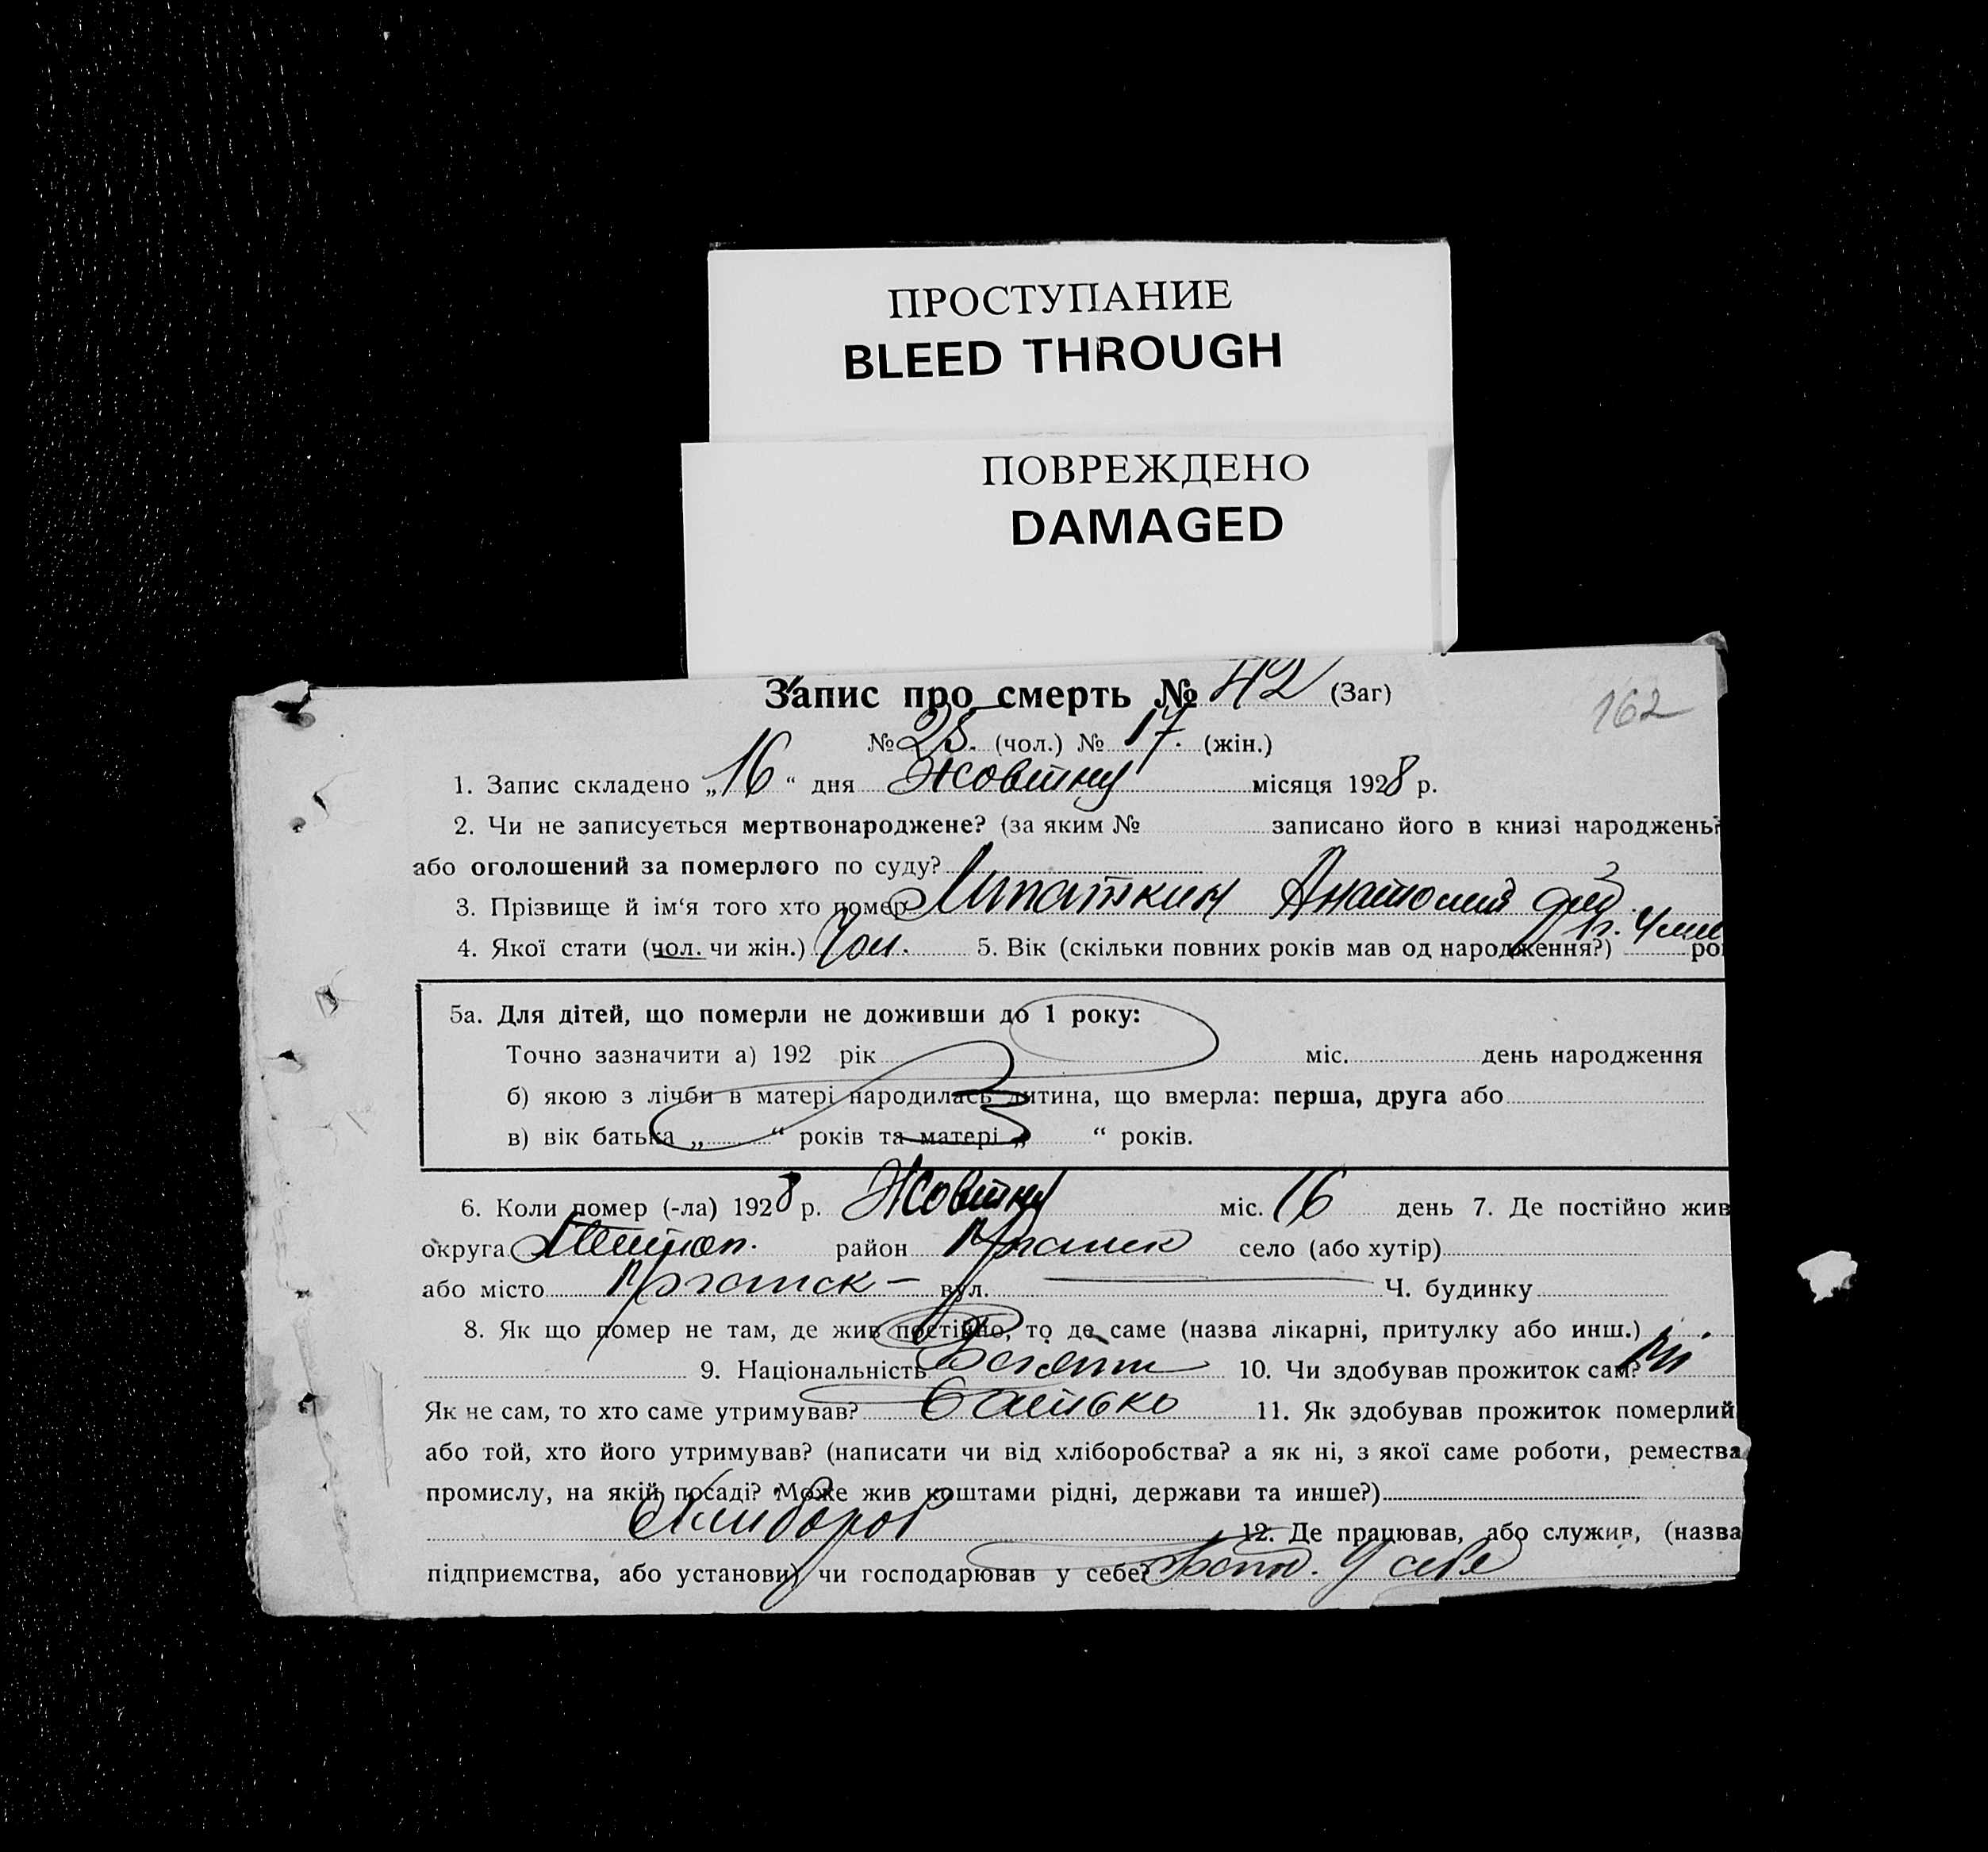 ПРОСТУПАНИЕ
BLEED THROUGH
ПОВРЕЖДЕНО
DAMAGED
Запис про смерть № 42 (Заг)
162
№ 25. (чол.) № 17. (жін.)
1. Запис складено „16“ дня Жовтня місяця 1928 р.
2. Чи не записується мертвонароджене? (за яким № записано його в книзі народжень?
або оголошений за померлого по суду?
3. Прізвище й ім‘я того хто помер Липаткин Анатолий
4. Якої стати (чол. чи жін.) Чол. 5. Вік (скільки повних років мав од народження?) ро
5а. Для дітей, що померли не доживши до 1 року:
Точно зазначити а) 192 рік міс. день народження
б) якою з лічби в матері народилась дитина, що вмерла: перша, друга або
в) вік батька „ “ років та матері „ “ років.
6. Коли помер (-ла) 1928 р. Жовтня міс. 16 день 7. Де постійно жив
округа район село (або хутір)
або місто вул. — Ч. будинку
8. Як що помер не там, де жив постійно, то де саме (назва лікарні, притулку або инш.)
9. Національність 10. Чи здобував прожиток сам? Ні
Як не сам, то хто саме утримував? батько 11. Як здобував прожиток померлий
або той, хто його утримував? (написати чи від хліборобства? а як ні, з якої саме роботи, ремества
промислу, на якій посаді? Може жив коштами рідні, держави та инше?)
Хлибороб 12. Де працював, або служив, (назва
підприємства, або установи) чи господарював у себе? у себе